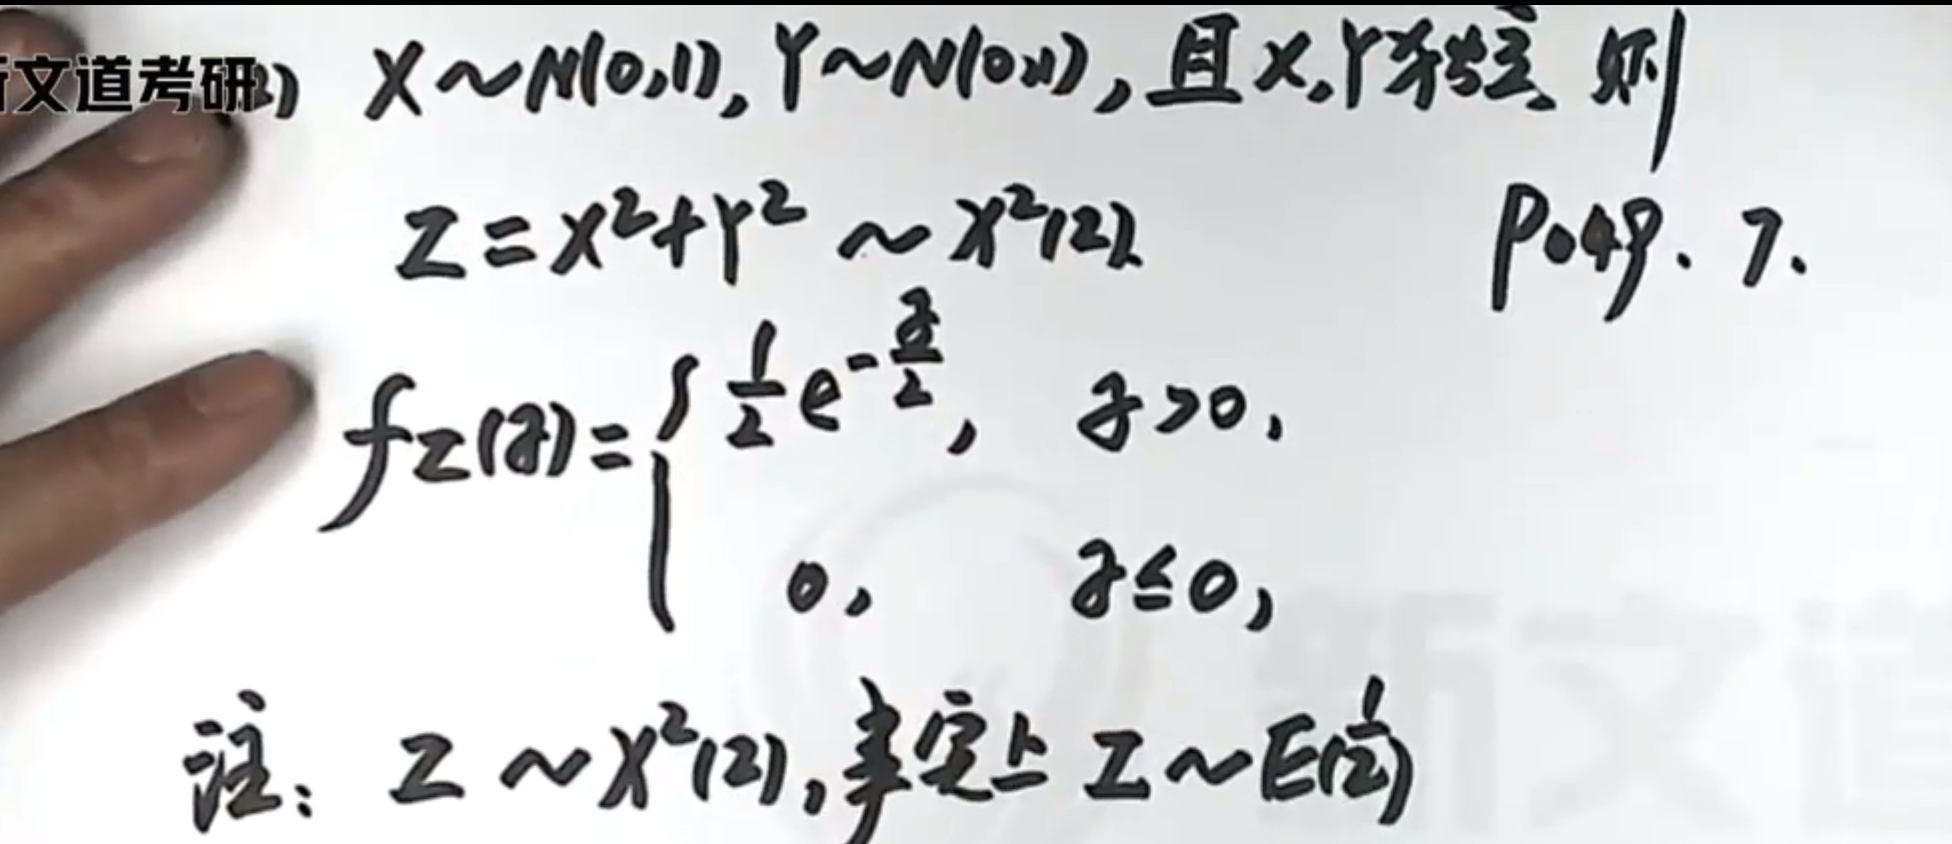 新文道考研2) X~N(0,1), Y~N(0,1), 且X,Y独立, 则
Z=X²+Y² ~ χ²(2). P049. 7.
f_Z(z)={ 1/2 e^{-z/2}, z>0,
0, z≤0,
注: Z~χ²(2), 事实上 Z~E(1/2)
新文道